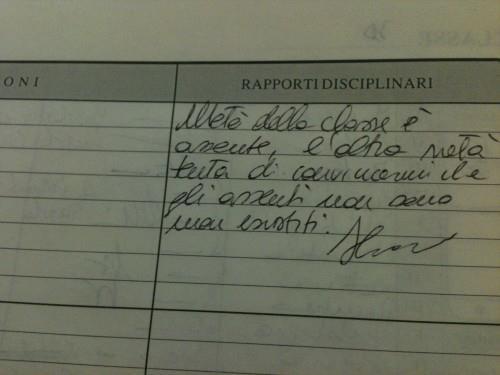 ONI
RAPPORTI DISCIPLINARI
Metà della classe è
assente, l'altra metà
tenta di convincermi che
gli assenti non sono
mai esistiti.